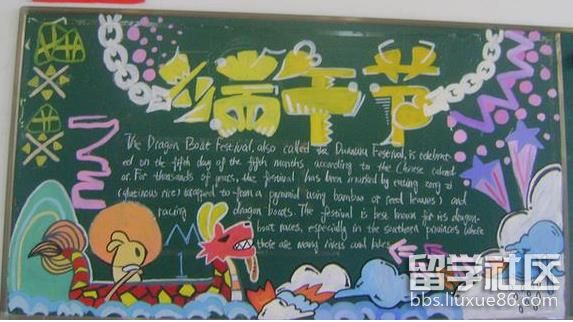 端午节
The Dragon Boat Festival, also called the Duanwu Festival, is celebrat
ed on the fifth day of the fifth months according to the Chinese calend
ar. For thousands of years, the festival has been marked by eating zong zi
(glutinous rice) wrapped to form a pyramid using bamboo or reed leaves) and
racing dragon boats. The festival is best known for its dragon-
boat races, especially in the southern provinces where
there are many rivers and lakes.
留学社区
bbs.liuxue86.com